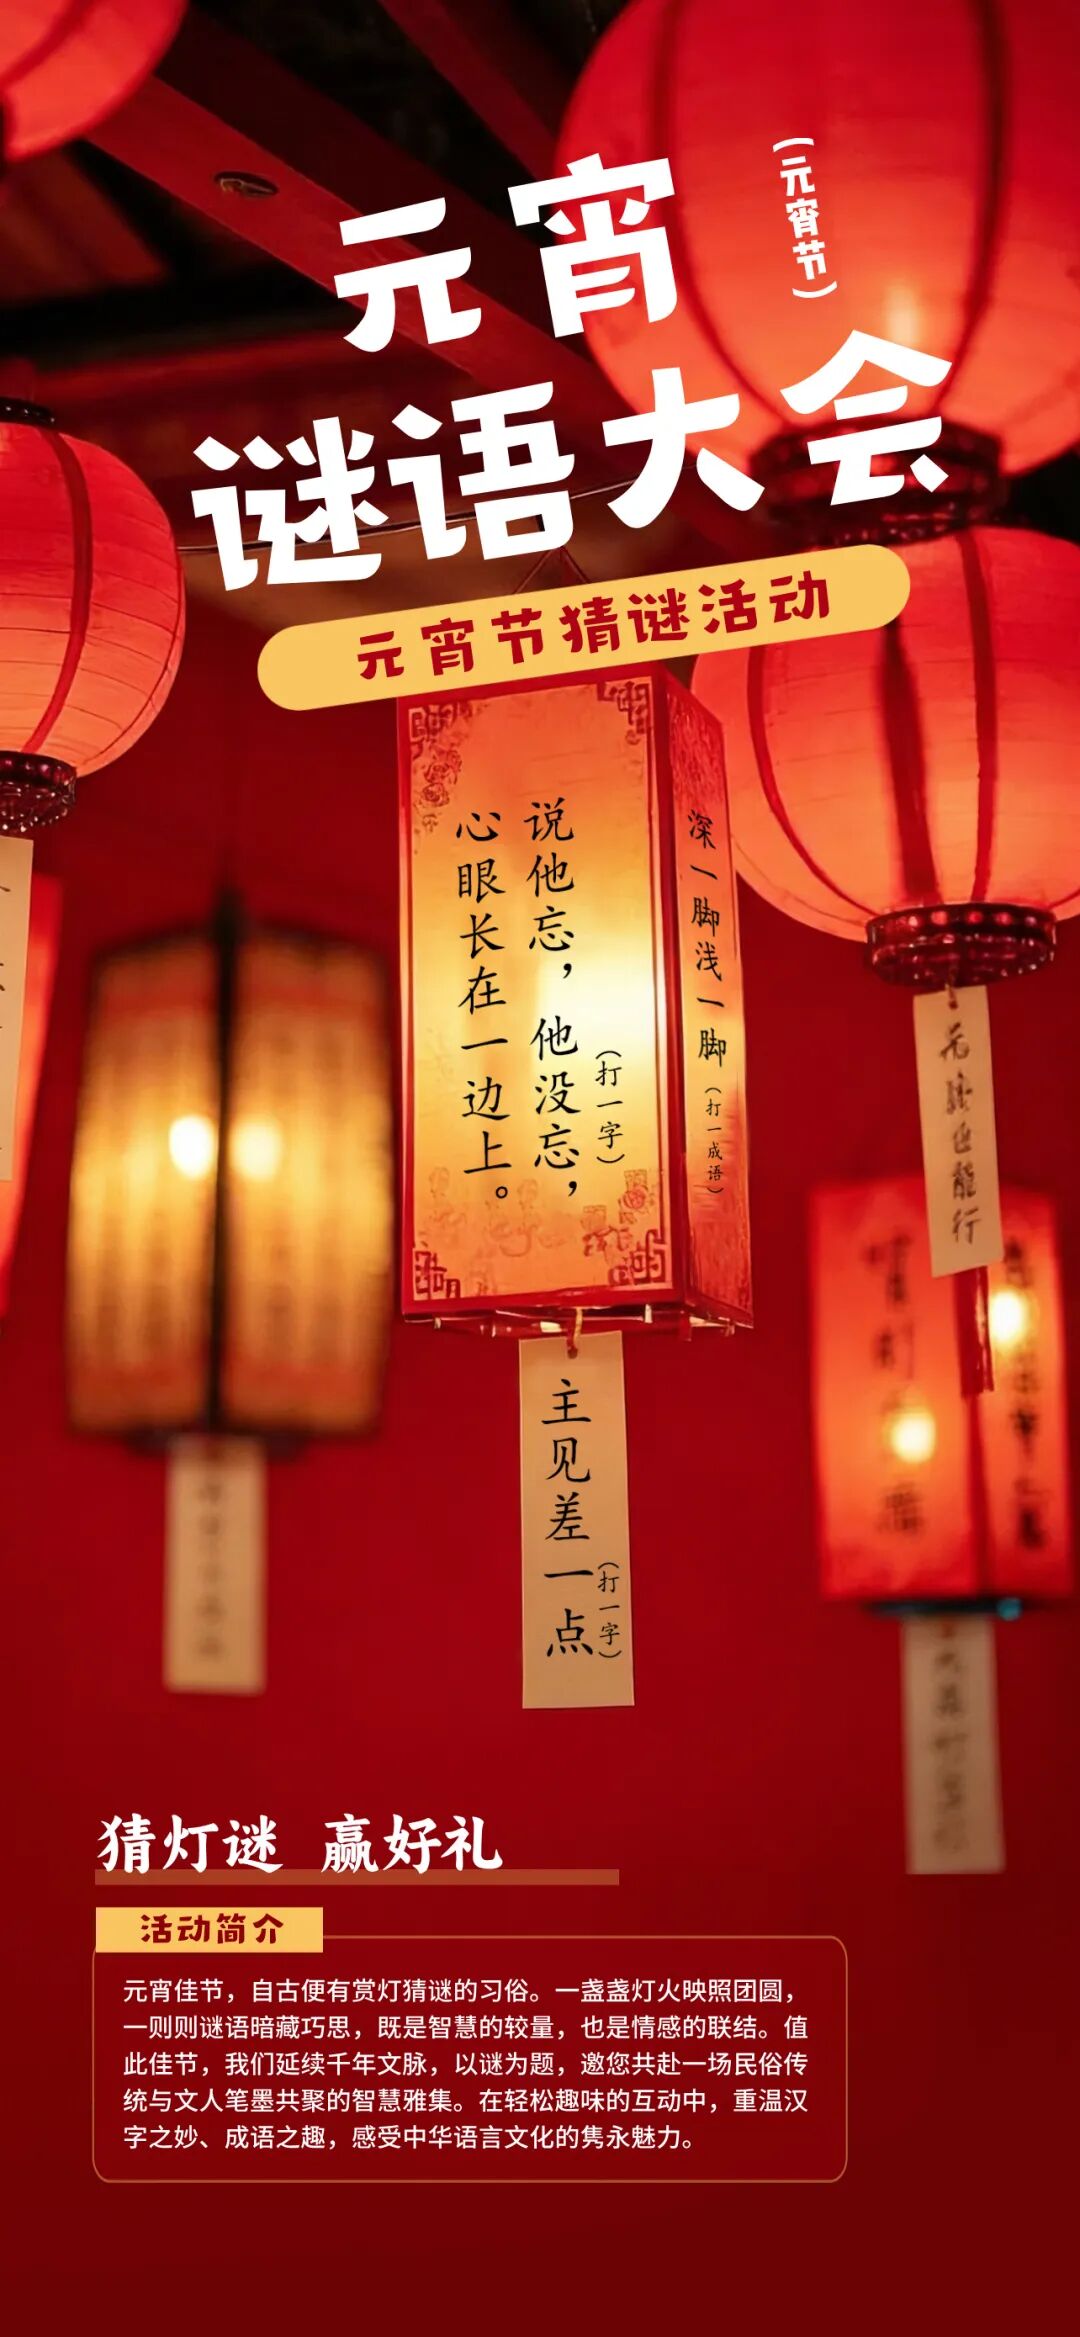 元宵
(元宵节)
谜语大会
元宵节猜谜活动
说他忘，他没忘，
心眼长在一边上。
(打一字)
深一脚浅一脚
(打一成语)
主见差一点
(打一字)
猜灯谜 赢好礼
活动简介
元宵佳节，自古便有赏灯猜谜的习俗。一盏盏灯火映照团圆，
一则则谜语暗藏巧思，既是智慧的较量，也是情感的联结。值
此佳节，我们延续千年文脉，以谜为题，邀您共赴一场民俗传
统与文人笔墨共聚的智慧雅集。在轻松趣味的互动中，重温汉
字之妙、成语之趣，感受中华语言文化的隽永魅力。